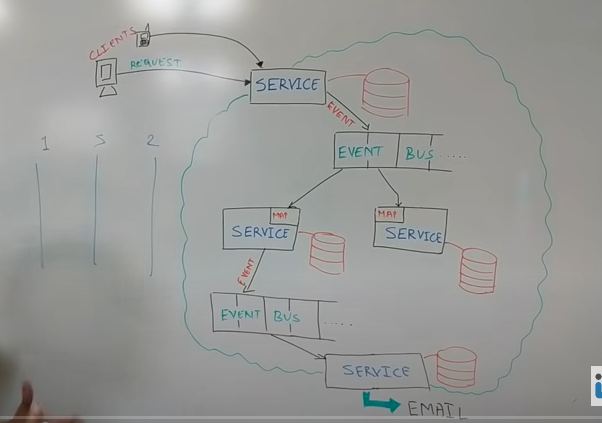 CLIENTS
REQUEST
SERVICE
EVENT
EVENT BUS .....
1 S 2
MAP
SERVICE
MAP
SERVICE
EVENT
EVENT BUS ....
SERVICE
EMAIL